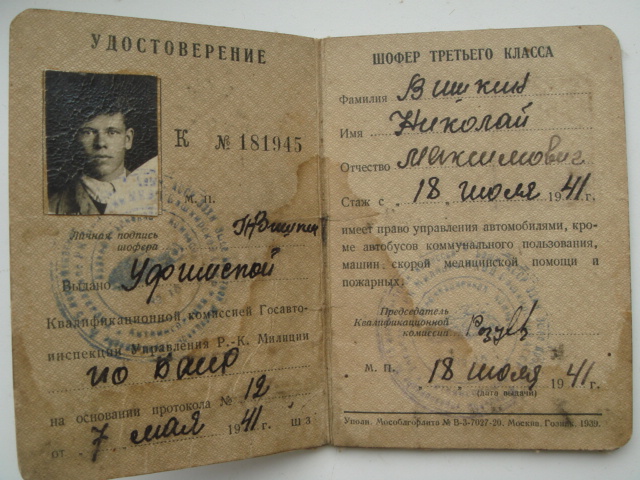 УДОСТОВЕРЕНИЕ
К № 181945
М. П.
Личная подпись
шофера
Выдано Уфимской
Квалификационной комиссией Госавто-
инспекции Управления Р.-К. Милиции
по БАССР
на основании протокола № 12
от 7 мая 1941 г. Ш 3
ШОФЕР ТРЕТЬЕГО КЛАССА
Фамилия Вишкин
Имя Николай
Отчество Максимович
Стаж с 18 июля 1941 г.
имеет право управления автомобилями, кро-
ме автобусов коммунального пользования,
машин скорой медицинской помощи и
пожарных.
Председатель
Квалификационной
комиссии
М. П. 18 июля 1941 г.
(дата выдачи)
Уполн. Мособлгорлита № В-3-7027-20. Москва. Гознак. 1939.